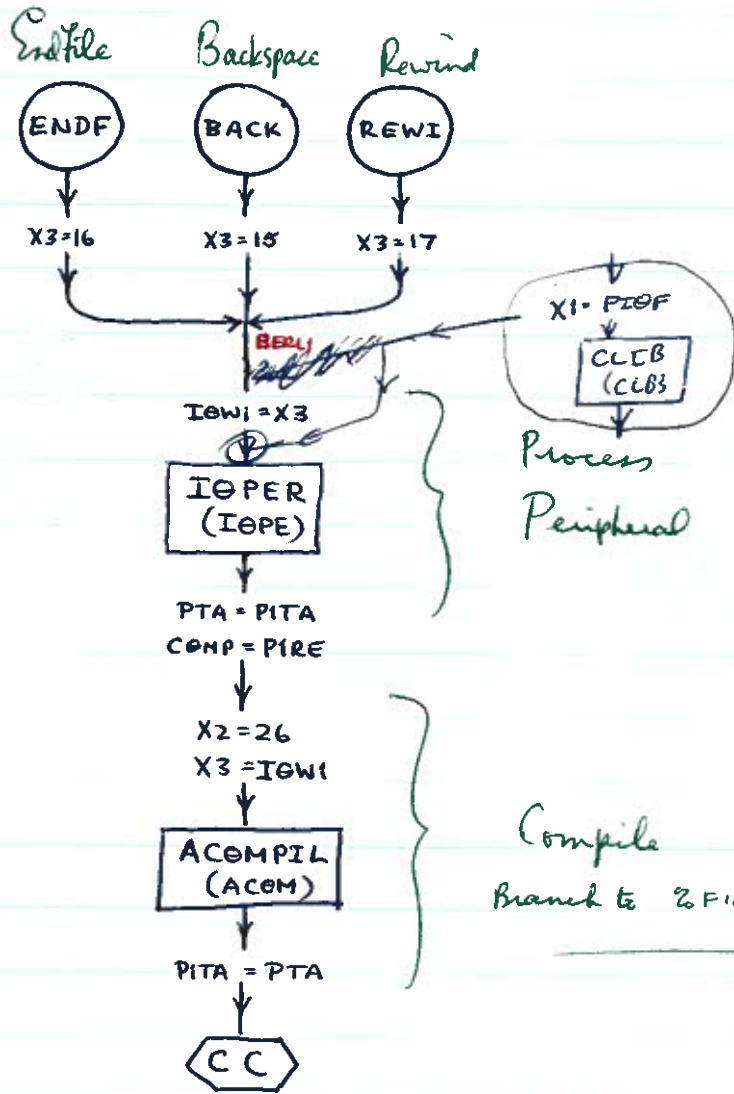 EndFile Backspace Rewind
ENDF BACK REWI
X3=16 X3=15 X3=17
X1=PIΘF
CLIB
(CLB3
BERW
IΘW1=X3
IΘPER
(IΘPE)
Process
Peripheral
PTA = PITA
CΘMP = PIRE
X2=26
X3=IΘW1
ACΘMPIL
(ACΘM)
Compile
Branch to %FI
PITA = PTA
CC